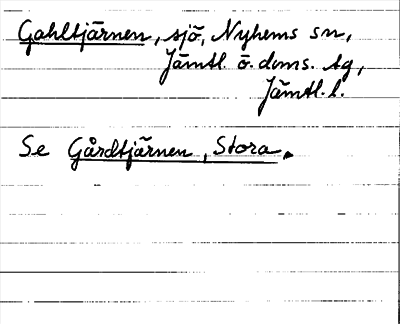 Gahltjärnen, sjö, Nyhems sn,
Jämtl. ö. doms. tg,
Jämtl. l.
Se Gårdtjärnen, Stora.